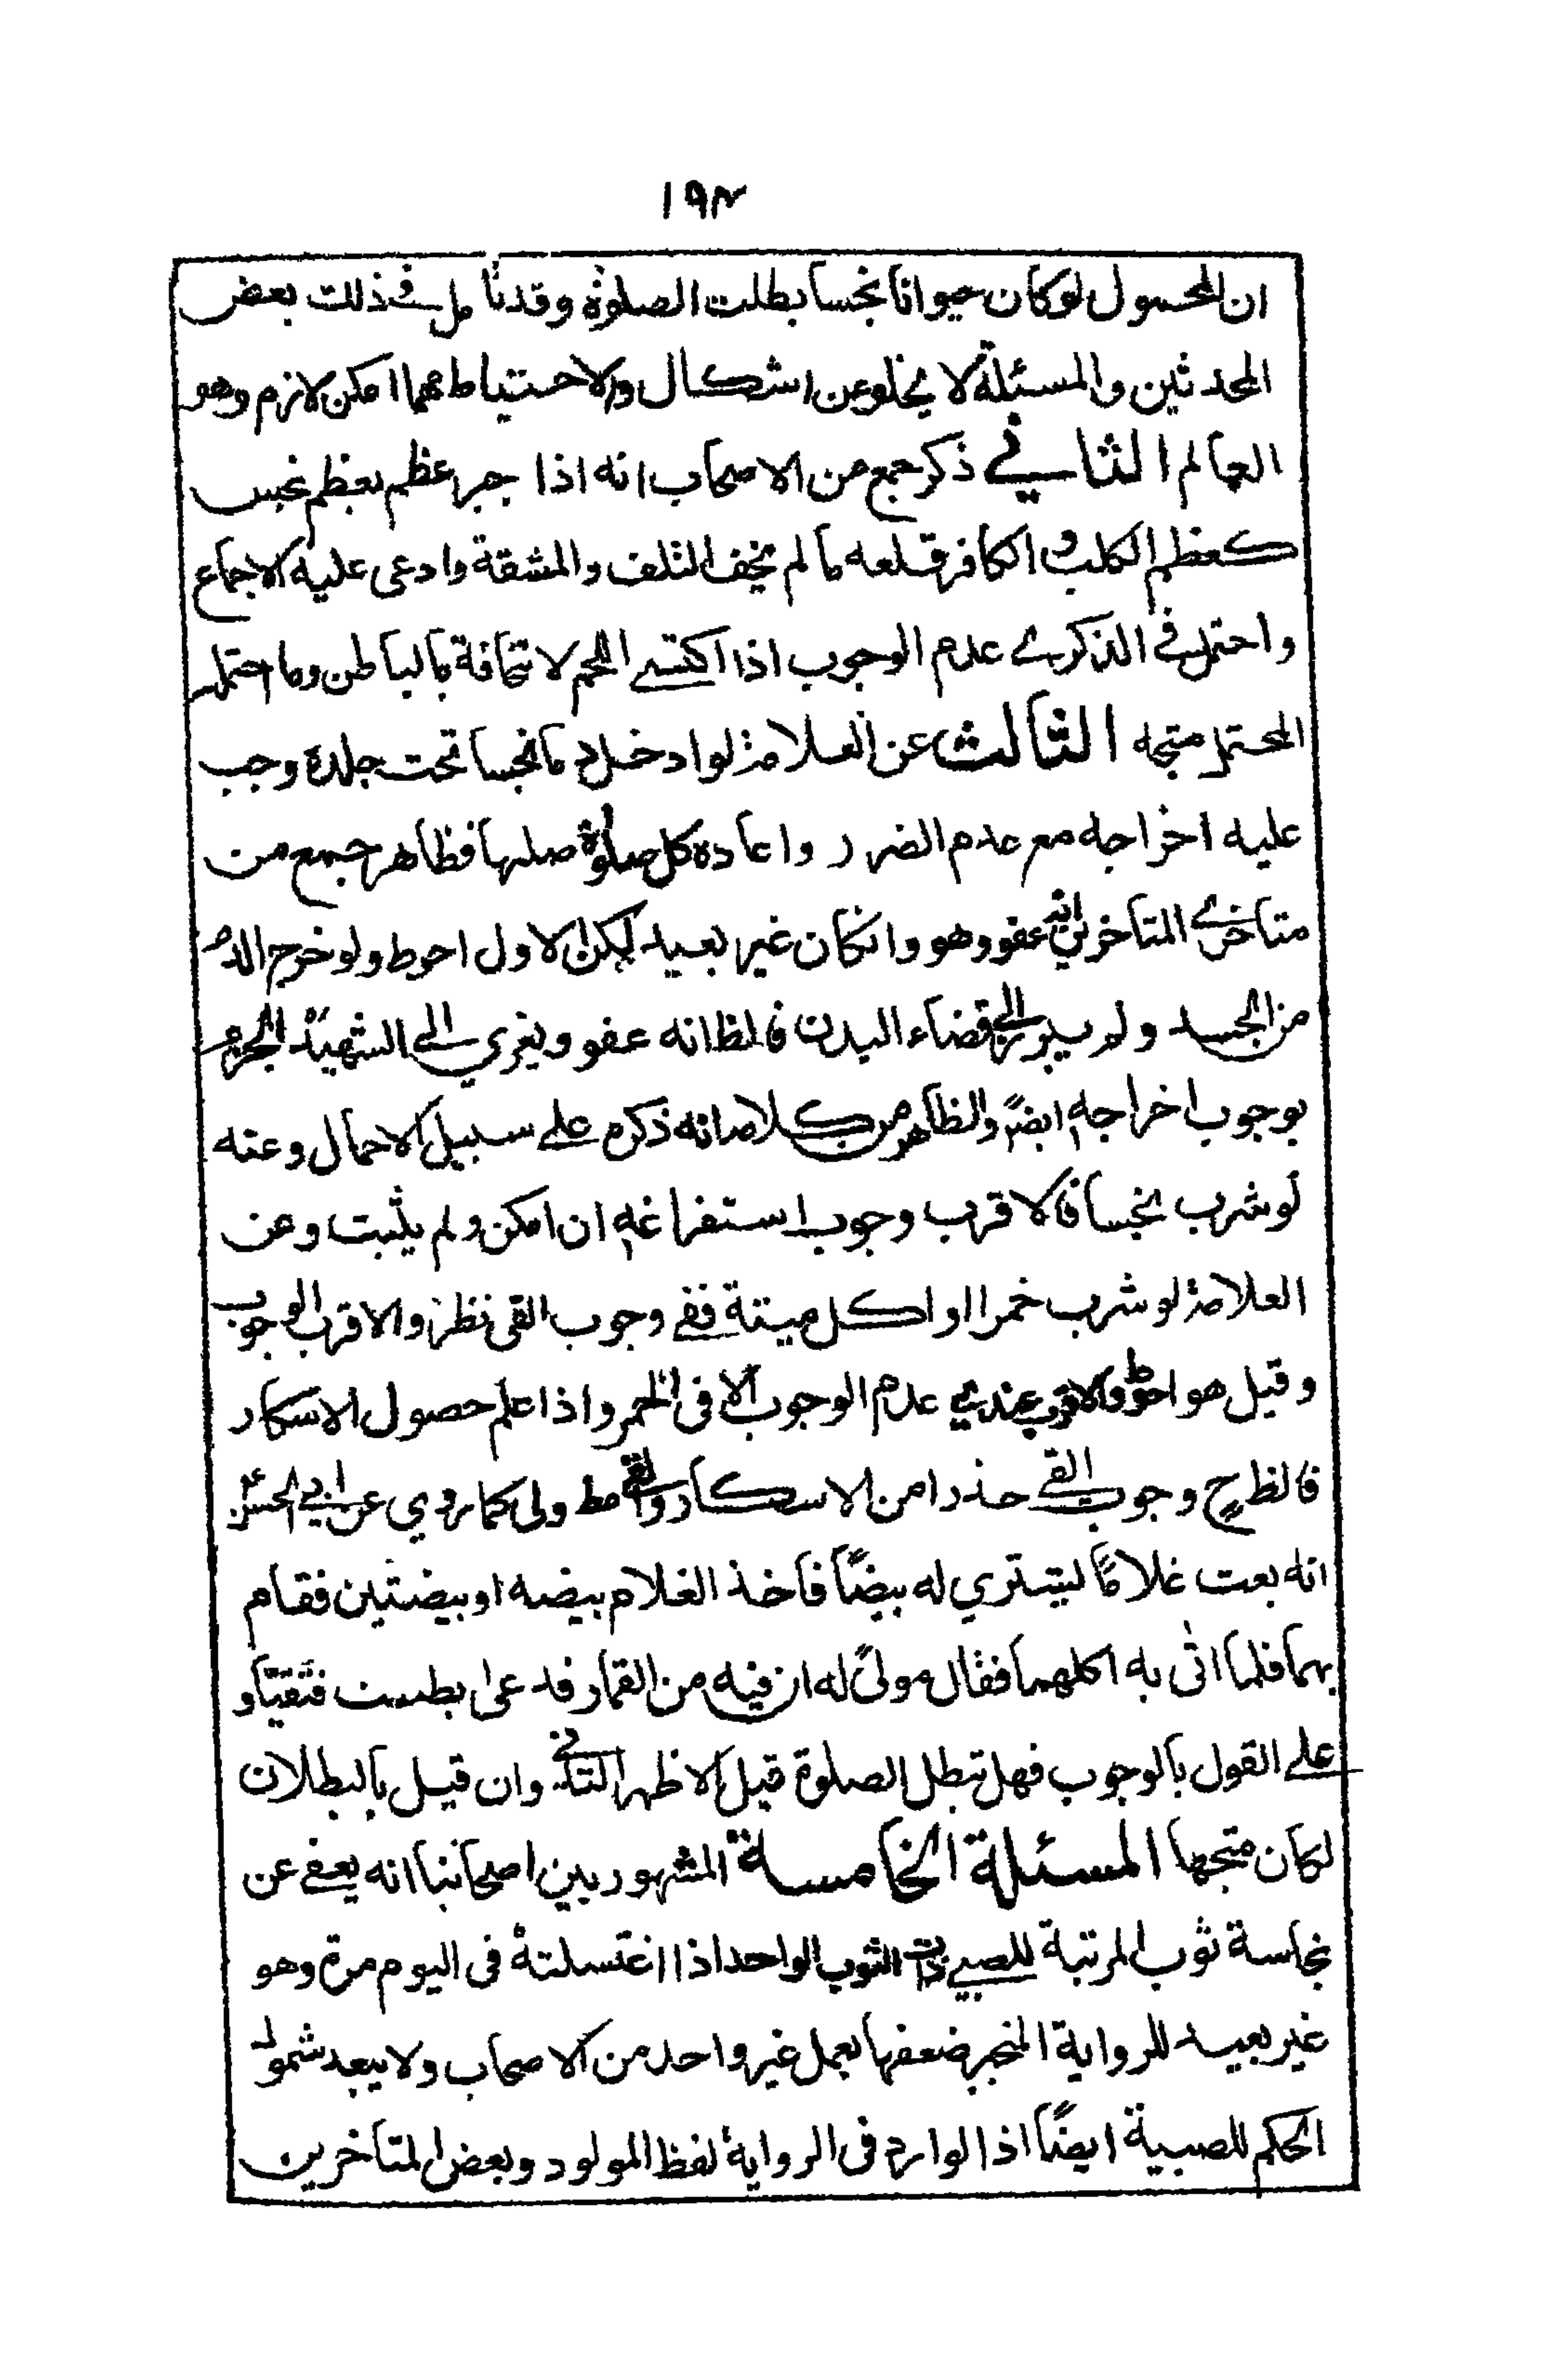 ١٩٣
ان المحمول لو كان حيوانا نجسا بطلت الصلوة وقد تأمل في ذلك بعض
المحدثين والمسئلة لا يخلو عن اشكال والاحتياط مهما امكن لازم وهو
العالم الثاني ذكر جمع من الاصحاب انه اذا جبر عظم بعظم نجس
كعظم الكلب والكافر قلعه ما لم يخف التلف والمشقة وادعى عليه الاجماع
واحتمل في الذكرى عدم الوجوب اذا اكتسى اللحم لالتحاقة بالباطن وما احتمله
المحتمل متجه الثالث عن العلامة لو ادخل دما نجسا تحت جلدة وجب
عليه اخراجه مع عدم الضرر واعادة كل صلوة صلها فظاهر جمع من
متأخري المتأخرين انه عفو وهو وانكان غير بعيد لكن الاول احوط ولو خرج الدم
من الجسد ولم يبرز الى فضاء البدن فالظ انه عفو ويعزي الى الشهيد الجزم
بوجوب اخراجه ايضاً والظاهر من كلامه انه ذكره على سبيل الاحتمال وعنه
لو شرب نجسا فالاقرب وجوب استفراغه ان امكن ولم يثبت وعن
العلامة لو شرب خمرا او اكل ميتة ففي وجوب القي نظر والاقرب الوجوب
وقيل هو احوط والاقرب عندي عدم الوجوب الا في الخمر واذا علم حصول الاسكار
فالظ ح وجوب القي حذرا من الاسكار والقي مط ولى كما روي عن ابي الحسن ع
انه بعث غلامًا ليشتري له بيضًا فاخذ الغلام بيضه او بيضتين فقام
بهما فلما اتى به اكلهما فقال مولىً له ان فيه من القمار فدعى بطست فتقيّأ و
على القول بالوجوب فهل تبطل الصلوة قيل الاظهر الثاني وان قيل بالبطلان
لكان متجها المسئلة الخامسة المشهور بين اصحابنا انه يعفى عن
نجاسة ثوب المرتبة للصبي ذات الثوب الواحد اذا اغتسلته في اليوم مرة وهو
غير بعيد للرواية المنجبر ضعفها بعمل غير واحد من الاصحاب ولا يبعد شموله
الحكم للصبية ايضًا اذ الوارد في الرواية لفظ المولود وبعض المتأخرين